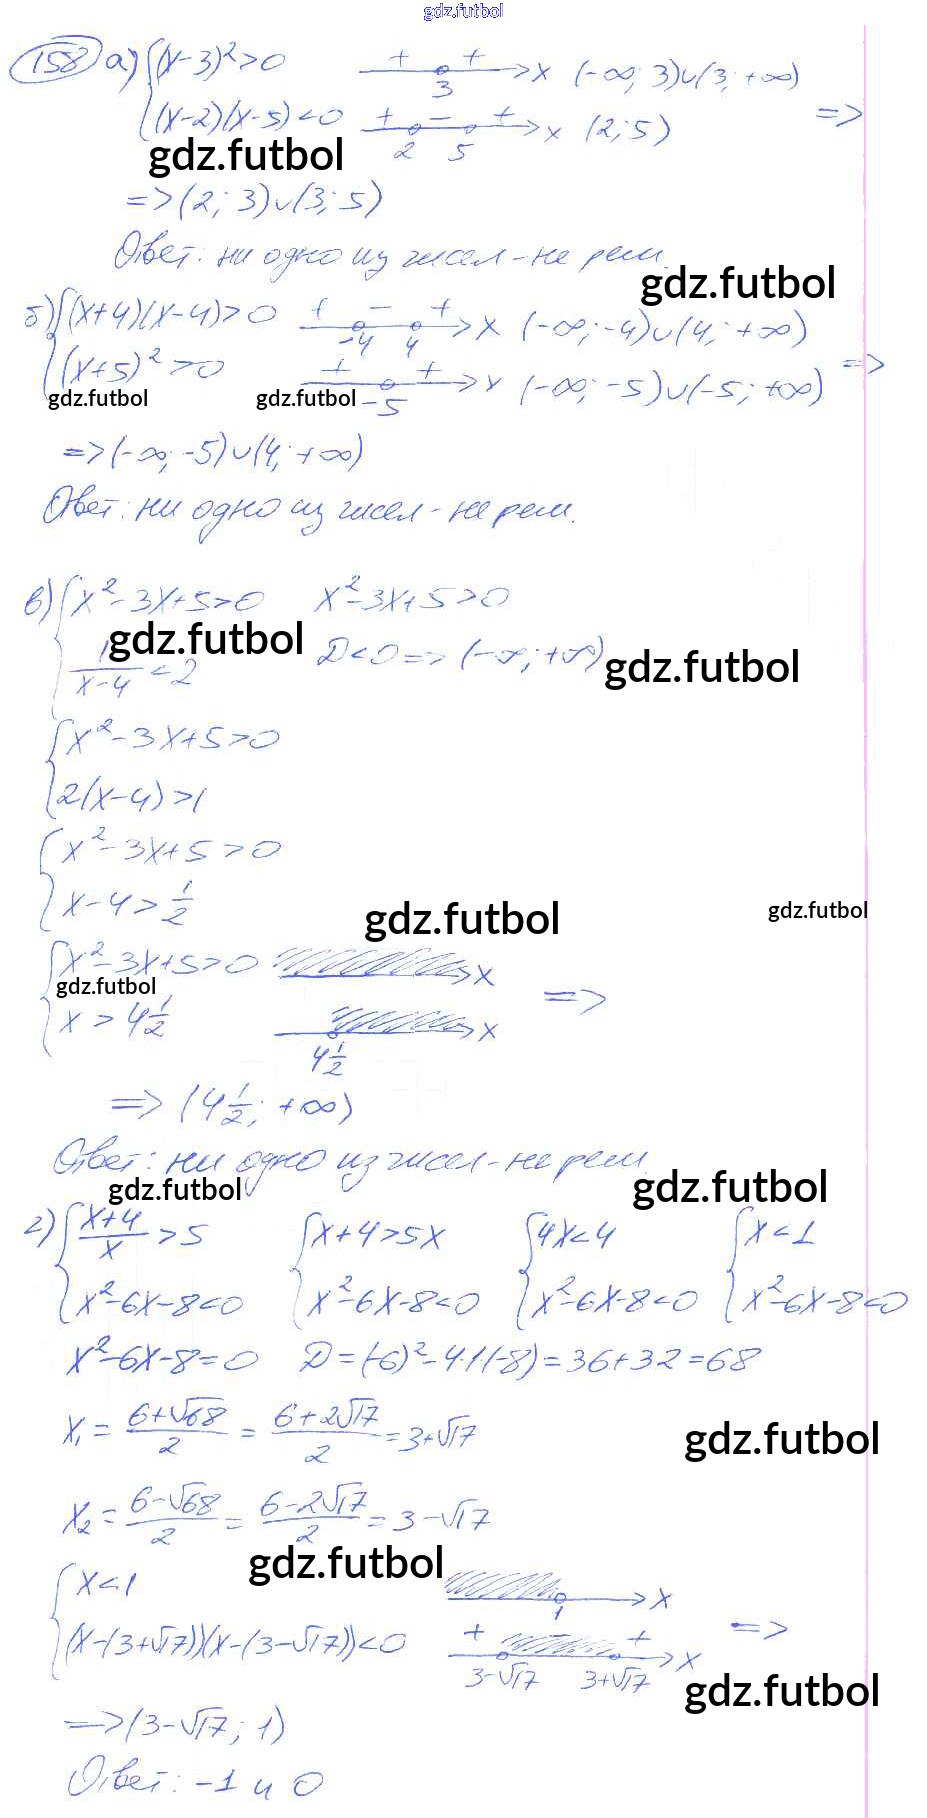 gdz.futbol
158 а) {(x-3)²>0 + + 3 x (-∞; 3)∪(3; +∞)
{(x-2)(x-5)<0 + - + 2 5 x (2; 5) =>
gdz.futbol
=> (2; 3)∪(3; 5)
Ответ: ни одно из чисел - не реш.
gdz.futbol
б) {(x+4)(x-4)>0 + - + -4 4 x (-∞; -4)∪(4; +∞)
{(x+5)²>0 + + -5 x (-∞; -5)∪(-5; +∞) =>
gdz.futbol gdz.futbol
=> (-∞; -5)∪(4; +∞)
Ответ: ни одно из чисел - не реш.
в) {x²-3x+5>0 x²-3x+5>0
gdz.futbol
{1/(x-4)<2 D<0 => (-∞; +∞)
gdz.futbol
{x²-3x+5>0
{2(x-4)>1
{x²-3x+5>0
{x-4>1/2
gdz.futbol gdz.futbol
{x²-3x+5>0 x
gdz.futbol
{x>4 1/2 4 1/2 x =>
=> (4 1/2; +∞)
Ответ: ни одно из чисел - не реш.
gdz.futbol gdz.futbol
г) {(x+4)/x>5 {x+4>5x {4x<4 {x<1
{x²-6x-8<0 {x²-6x-8<0 {x²-6x-8<0 {x²-6x-8<0
x²-6x-8=0 D=(-6)²-4·1(-8)=36+32=68
x₁=(6+√68)/2=(6+2√17)/2=3+√17
gdz.futbol
x₂=(6-√68)/2=(6-2√17)/2=3-√17
gdz.futbol
{x<1 1 x
{(x-(3+√17))(x-(3-√17))<0 + + 3-√17 3+√17 x =>
gdz.futbol
=> (3-√17; 1)
Ответ: -1 и 0